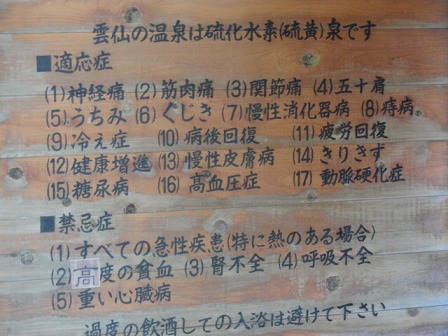 雲仙の温泉は硫化水素(硫黄)泉です
■適応症
(1)神経痛 (2)筋肉痛 (3)関節痛 (4)五十肩
(5)うちみ (6)くじき (7)慢性消化器病 (8)痔病
(9)冷え症 (10)病後回復 (11)疲労回復
(12)健康増進 (13)慢性皮膚病 (14)きりきず
(15)糖尿病 (16)高血圧症 (17)動脈硬化症
■禁忌症
(1)すべての急性疾患(特に熱のある場合)
(2)高度の貧血 (3)腎不全 (4)呼吸不全
(5)重い心臓病
過度の飲酒しての入浴は避けて下さい